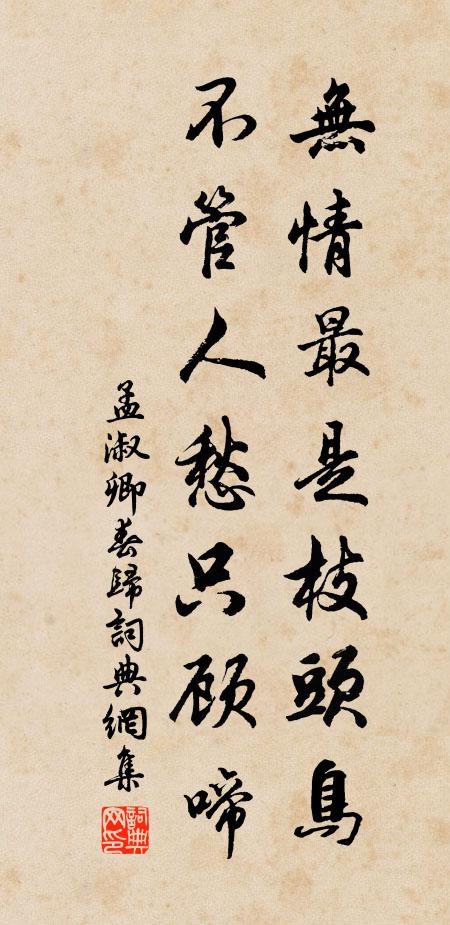 無情最是枝頭鳥
不管人愁只顧啼
孟淑卿春歸詞典網集
詞典网印